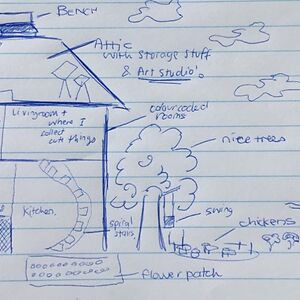 BENCH
Attic
with storage stuff
& Art studio.
Livingroom +
where I
collect
cute things
colourcoded
rooms
nice trees
Kitchen.
spiral
stairs
swing
chickens
flower patch